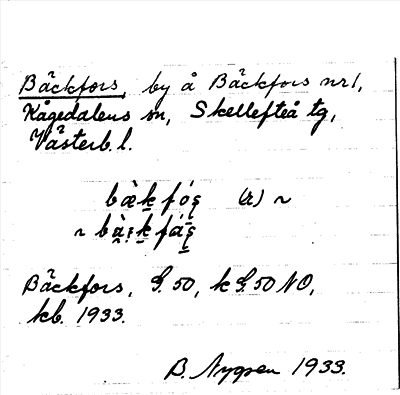 Bäckfors, by å Bäckfors nr 1,
Kågedalens sn, Skellefteå tg,
Västerb. l.
bàkfós (r) ~
~ bàkfás
Bäckfors, G. 50, k G. 50 NO,
kb. 1933.
B. Nygren 1933.